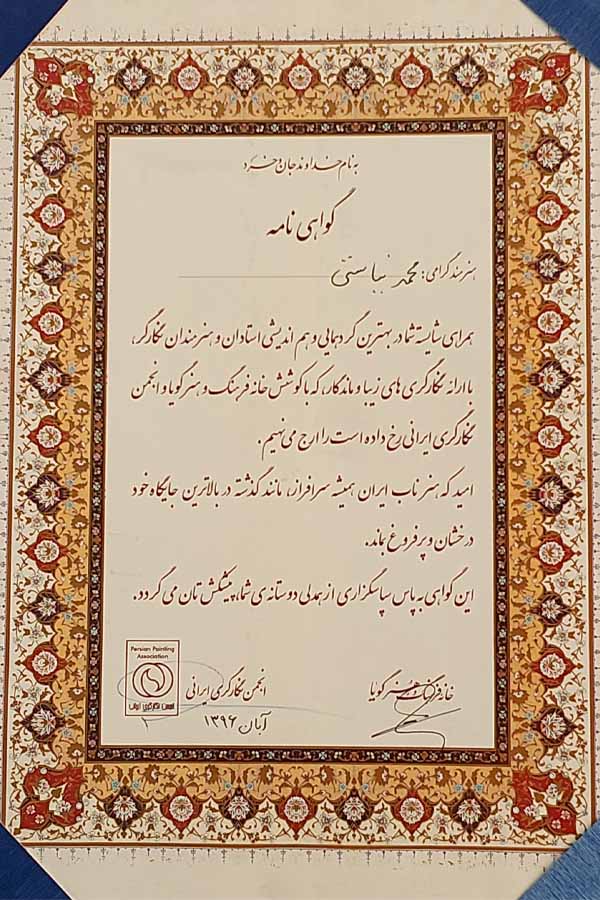 به نام خداوند جان و خرد
گواهی نامه
هنرمند گرامی: محمد نباستی
همراهی شایسته شما در بهترین گردهمایی و هم اندیشی استادان و هنرمندان نگارگر،
با ارائه نگارگری های زیبا و ماندگار، که با کوشش خانه فرهنگ و هنر گویا و انجمن
نگارگری ایرانی رخ داده است را ارج می نهیم.
امید که هنر ناب ایران همیشه سرافراز، مانند گذشته در بالاترین جایگاه خود
درخشان و پرفروغ بماند.
این گواهی به پاس سپاسگزاری از همدلی دوستانه ی شما، پیشکش تان می گردد.
خانه فرهنگ و هنر گویا
انجمن نگارگری ایرانی
آبان ۱۳۹۶
Persian Painting
Association
انجمن نگارگری ایرانی